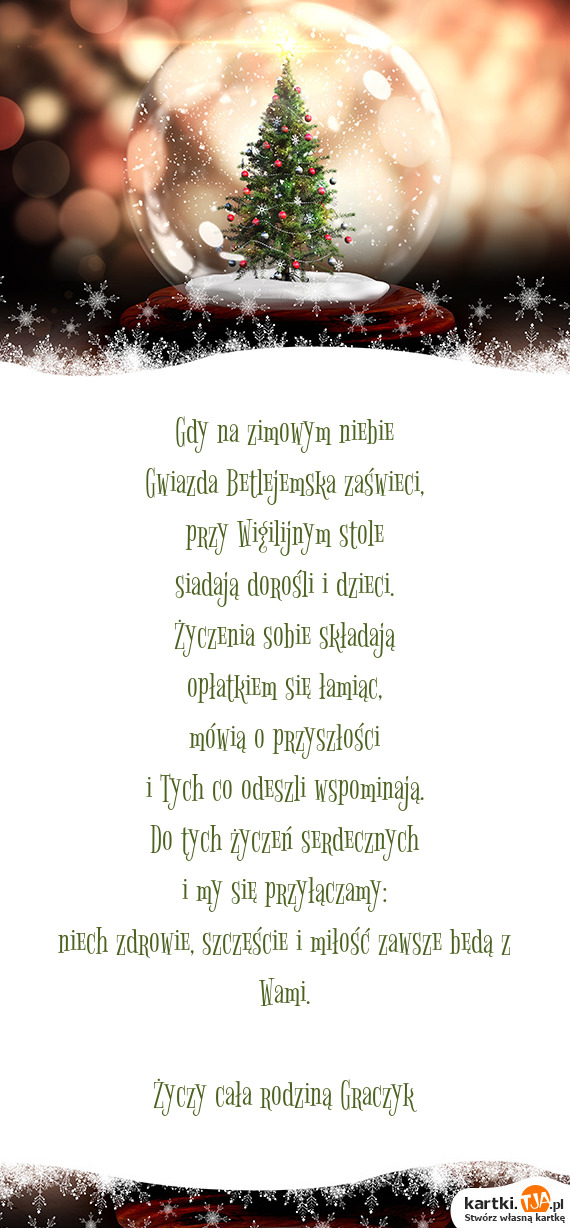 Gdy na zimowym niebie
Gwiazda Betlejemska zaświeci,
przy Wigilijnym stole
siadają dorośli i dzieci.
Życzenia sobie składają
opłatkiem się łamiąc,
mówią o przyszłości
i Tych co odeszli wspominają.
Do tych życzeń serdecznych
i my się przyłączamy:
niech zdrowie, szczęście i miłość zawsze będą z
Wami.
Życzy cała rodziną Graczyk
kartki.TJA.pl
Stwórz własną kartkę